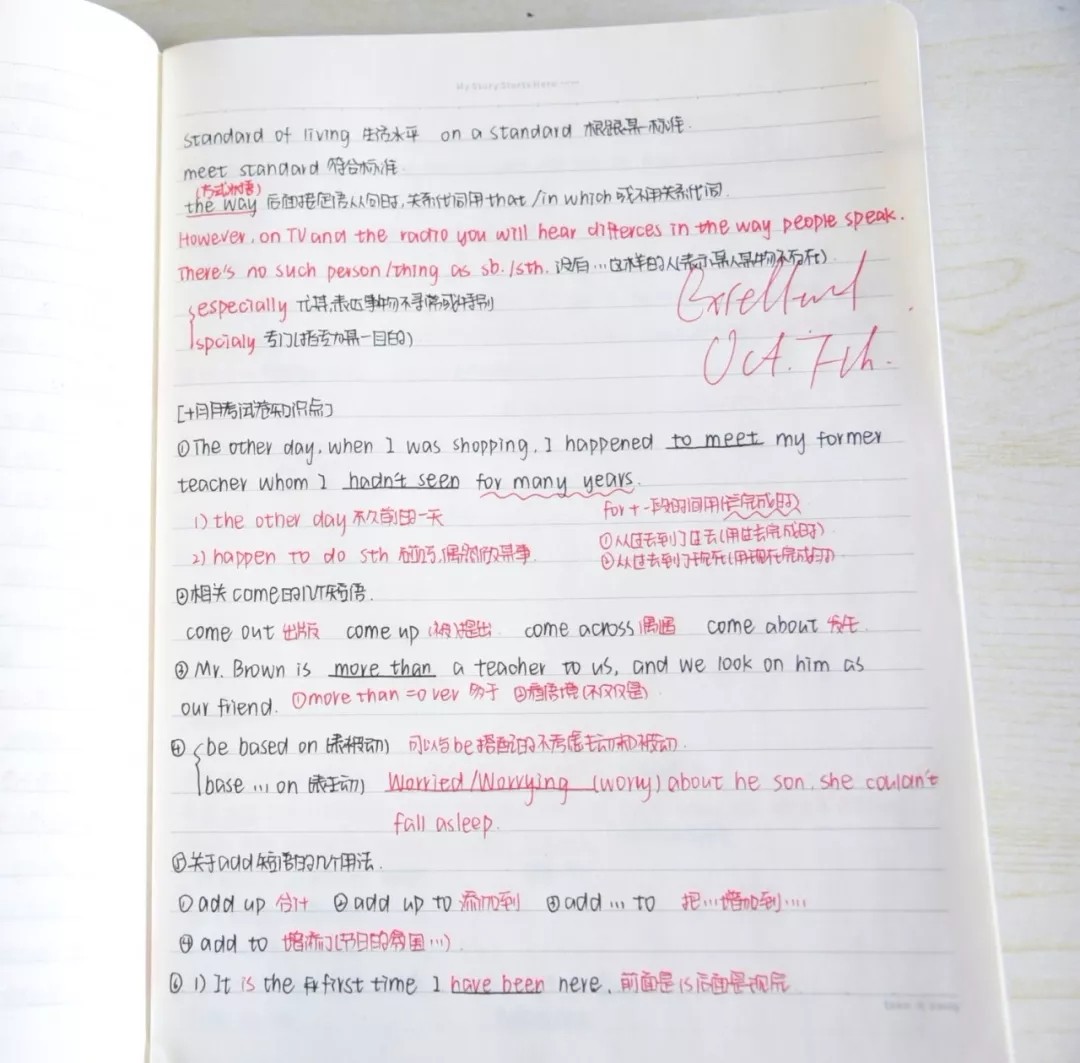 My Story Starts Here
standard of living 生活水平 on a standard 根跟某一标准.
meet standard 符合标准.
(方式状语)
the way 后面接定语从句时,关系代词用that/in which或不用关系代词.
However, on TV and the radio you will hear differces in the way people speak.
There's no such person/thing as sb./sth. 没有…这样的人(表示某人某物不存在)
especially 尤其,表达事物不寻常或特别
Excellent
spcialy 专门(指专为某一目的)
Oct. 7th.
[十月月考试卷知识点]
①The other day, when I was shopping, I happened to meet my former
teacher whom I hadn't seen for many years.
1) the other day 不久前的一天 for+一段时间用(完成时)
①从过去到了过去(用过去完成时)
2) happen to do sth 碰巧,偶然做某事. ②从过去到了现在(用现在完成时)
②相关come的几个短语.
come out 出版 come up (被)提出 come across 偶遇 come about 发生.
③Mr. Brown is more than a teacher to us, and we look on him as
our friend. ①more than =over 多于 ②看语境(不仅仅是)
④ be based on (表被动) 可以与be搭配的不考虑主动和被动.
base … on (表主动) Worried/Worrying (worry) about he son, she couldn't
fall asleep.
⑤关于add短语的几个用法.
①add up 合计 ②add up to 添加到 ③add … to 把…增加到….
④ add to 增添了(节日的氛围…).
⑥ 1) It is the first time I have been here, 前面是is后面是现完